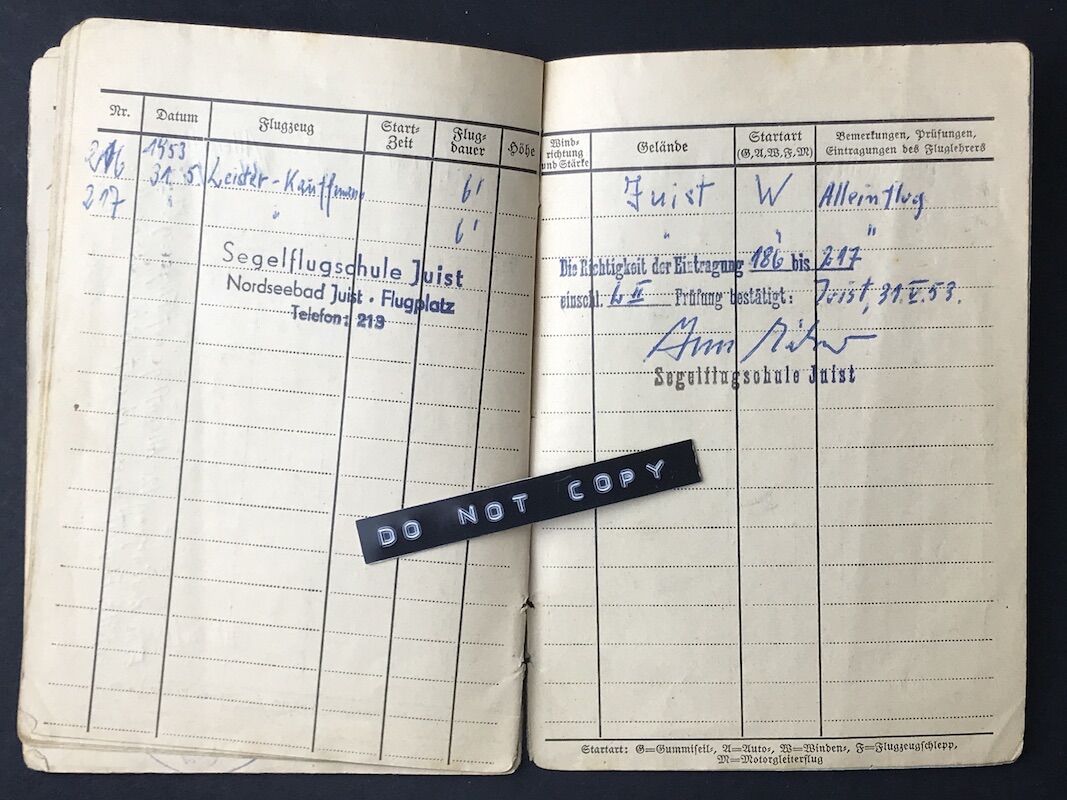 Nr. Datum Flugzeug Start-Zeit Flug-dauer Höhe
216 1953 31. 5. Kauffmann 6'
217 " " 6'
Segelflugschule Juist
Nordseebad Juist · Flugplatz
Telefon: 213
Wind-richtung und Stärke Gelände Startart (G,A,W,F,M) Bemerkungen, Prüfungen, Eintragungen des Fluglehrers
Juist W Alleinflug
" " "
Die Richtigkeit der Eintragung 186 bis 217
einschl. L II Prüfung bestätigt: Juist, 31.V.53.
Segelflugschule Juist
DO NOT COPY
Startart: G=Gummiseil-, A=Auto-, W=Winden-, F=Flugzeugschlepp,
M=Motorgleiterflug